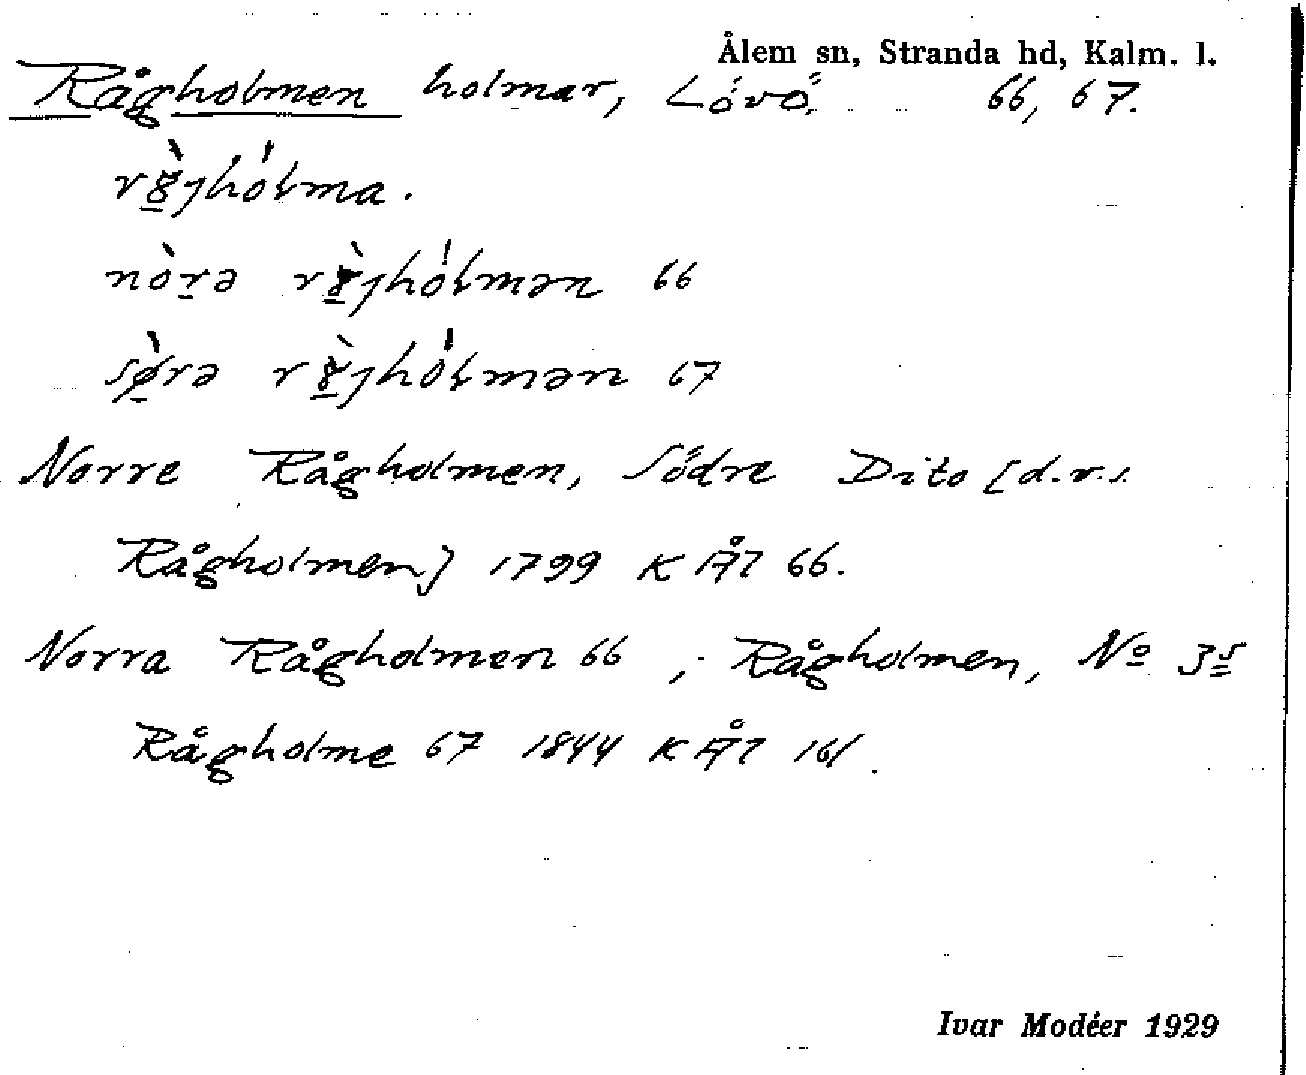 Ålem sn, Stranda hd, Kalm. l.
Rågholmen holmar, Lövö. 66, 67.
rȣ̀jhólma.
nòrə rȣ̀jhólmən 66
sø̀rə rȣ̀jhólmən 67
Norre Rågholmen, Södre Dito [d.v.s.
Rågholmen] 1799 K ÅL 66.
Norra Rågholmen 66, Rågholmen, No 35
Rågholme 67 1844 K ÅL 161.
Ivar Modéer 1929